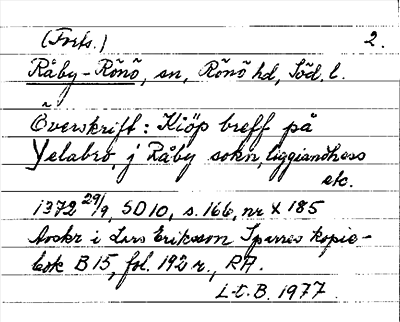 (Forts.) 2.
Råby-Rönö, sn, Rönö hd, Söd. l.
Överskrift: Kiöp breff på
Yelabro, j Råby sokn, liggiandhess
etc.
1372 29/9, SD 10, s. 166, nr X 185
Avskr i Lars Eriksson Sparres kopie-
bok B 15, fol. 192 r., RA.
L-E. B. 1977